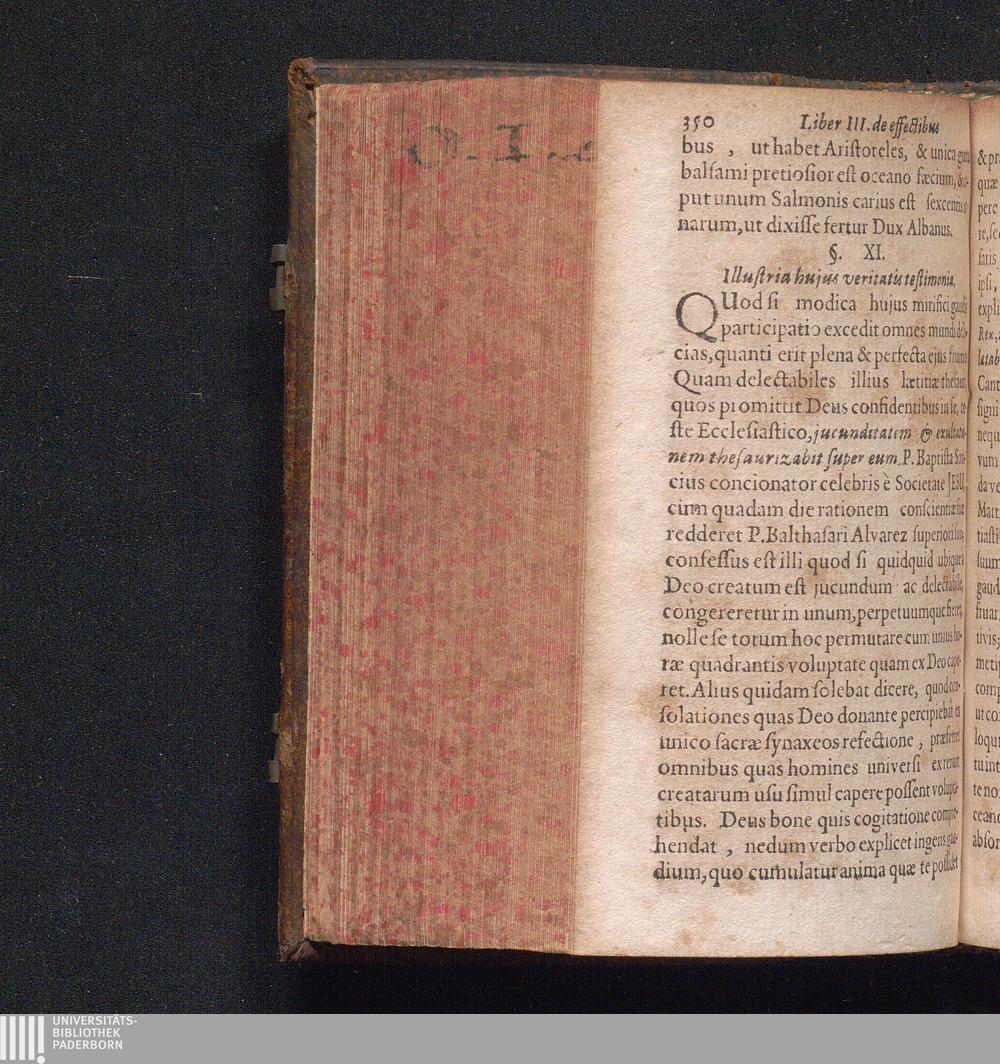 350 Liber III. de effectibus
bus , ut habet Aristoteles, & unica
balsami pretiosior est oceano fæcium,
put unum Salmonis carius est
narum, ut dixisse fertur Dux Albanus.
§. XI.
Illustria hujus veritatis testimonia.
QUod si modica hujus mirifici gaudii
participatio excedit omnes mundi
cias, quanti erit plena & perfecta ejus
Quam delectabiles illius lætitiæ
quos promittit Deus confidentibus in se,
ste Ecclesiastico, jucunditatem & exultatio-
nem thesaurizabit super eum. P. Baptista
cius concionator celebris è Societate JESU,
cum quadam die rationem conscientiæ suæ
redderet P. Balthasari Alvarez superiori suo,
confessus est illi quod si quidquid ubique à
Deo creatum est jucundum ac delectabile,
congereretur in unum, perpetuumque fieret,
nolle se totum hoc permutare cum unius ho-
ræ quadrantis voluptate quam ex Deo cape-
ret. Alius quidam solebat dicere, quod con-
solationes quas Deo donante percipiebat ex
unico sacræ synaxeos refectione , præferret
omnibus quas homines universi ex rerum
creatarum usu simul capere possent volupta-
tibus. Deus bone quis cogitatione compre-
hendat , nedum verbo explicet ingens gau-
dium, quo cumulatur anima quæ te possidet
& pr
quæ
pere
re, se
satis
ipsi,
expli
Rex,
lætab
Cant
signi
nequ
vuni
da ve
Matt
tiasti
suum
gaud
fruar
tivis,
metip
comp
ut co
loqui
tu int
te no
ceano
absor
UNIVERSITÄTS-
BIBLIOTHEK
PADERBORN